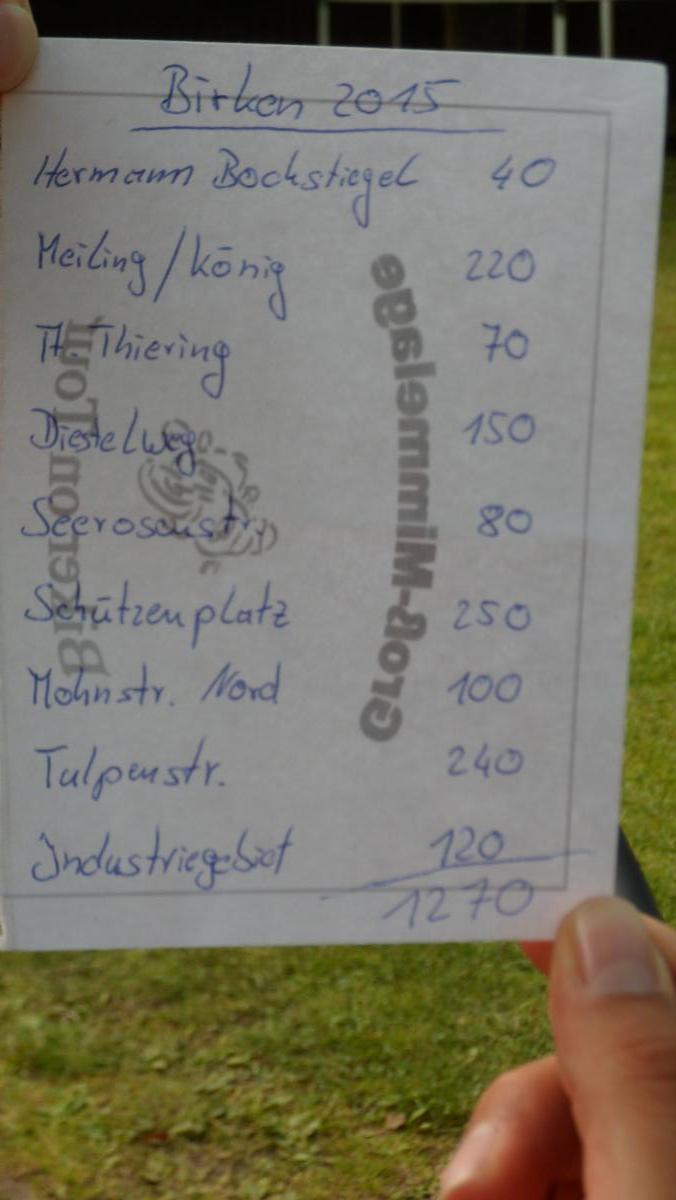 Birken 2015
Hermann Bockstiegel 40
Meiling/König 220
H. Thiering 70
Diestelweg 150
Seerosenstr. 80
Schützenplatz 250
Mohnstr. Nord 100
Tulpenstr. 240
Industriegebiet 120
1270
Birken on Tour
Groß-Mimmelage